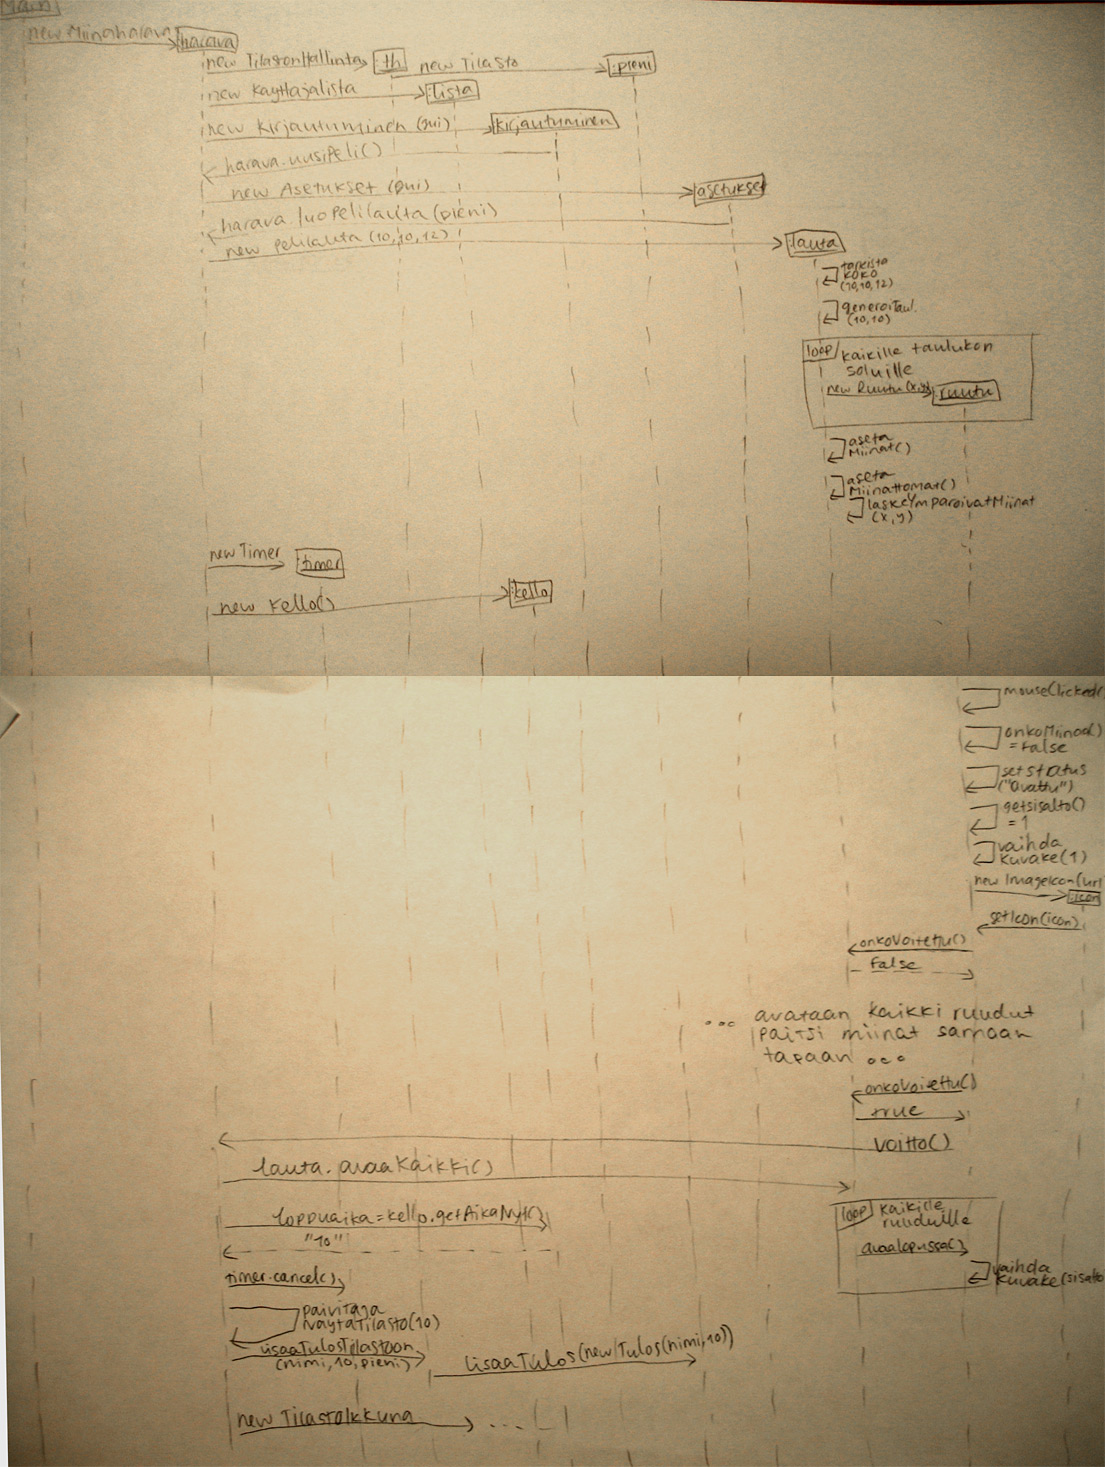 Main
new Miinaharava
harava
new TilastonHallinta
:th
new Tilasto
:pieni
new Kayttajalista
:lista
new Kirjautuminen (gui)
kirjautuminen
harava.uusiPeli()
new Asetukset (gui)
asetukset
harava luoPelilauta(pieni)
new Pelilauta (10,10,12)
:lauta
tarkista
koko
(10,10,12)
generoiTaul.
(10,10)
loop
kaikille taulukon
soluille
new Ruutu(x,y)
:ruutu
aseta
Miinat()
aseta
Miinattomat()
laskeYmparoivatMiinat
(x,y)
new Timer
:timer
new Kello()
:kello
mouseClicked(
onkoMiinaa()
= false
setStatus
("avattu")
getSisalto()
= 1
vaihda
kuvake(1)
new ImageIcon(url
:icon
setIcon(icon)
onkoVoitettu()
false
... avataan kaikki ruudut
paitsi miinat samaan
tapaan ...
onkoVoitettu()
true
voitto()
lauta.avaaKaikki()
loppuaika=kello.getAikaNyt()
"10"
loop
kaikille
ruuduille
avaaLopussa()
vaihda
kuvake(sisalto
timer.cancel()
paivitaJa
NaytaTilasto(10)
lisaaTulosTilastoon
(nimi,10,pieni)
lisaaTulos(new Tulos(nimi,10))
new TilastoIkkuna
...